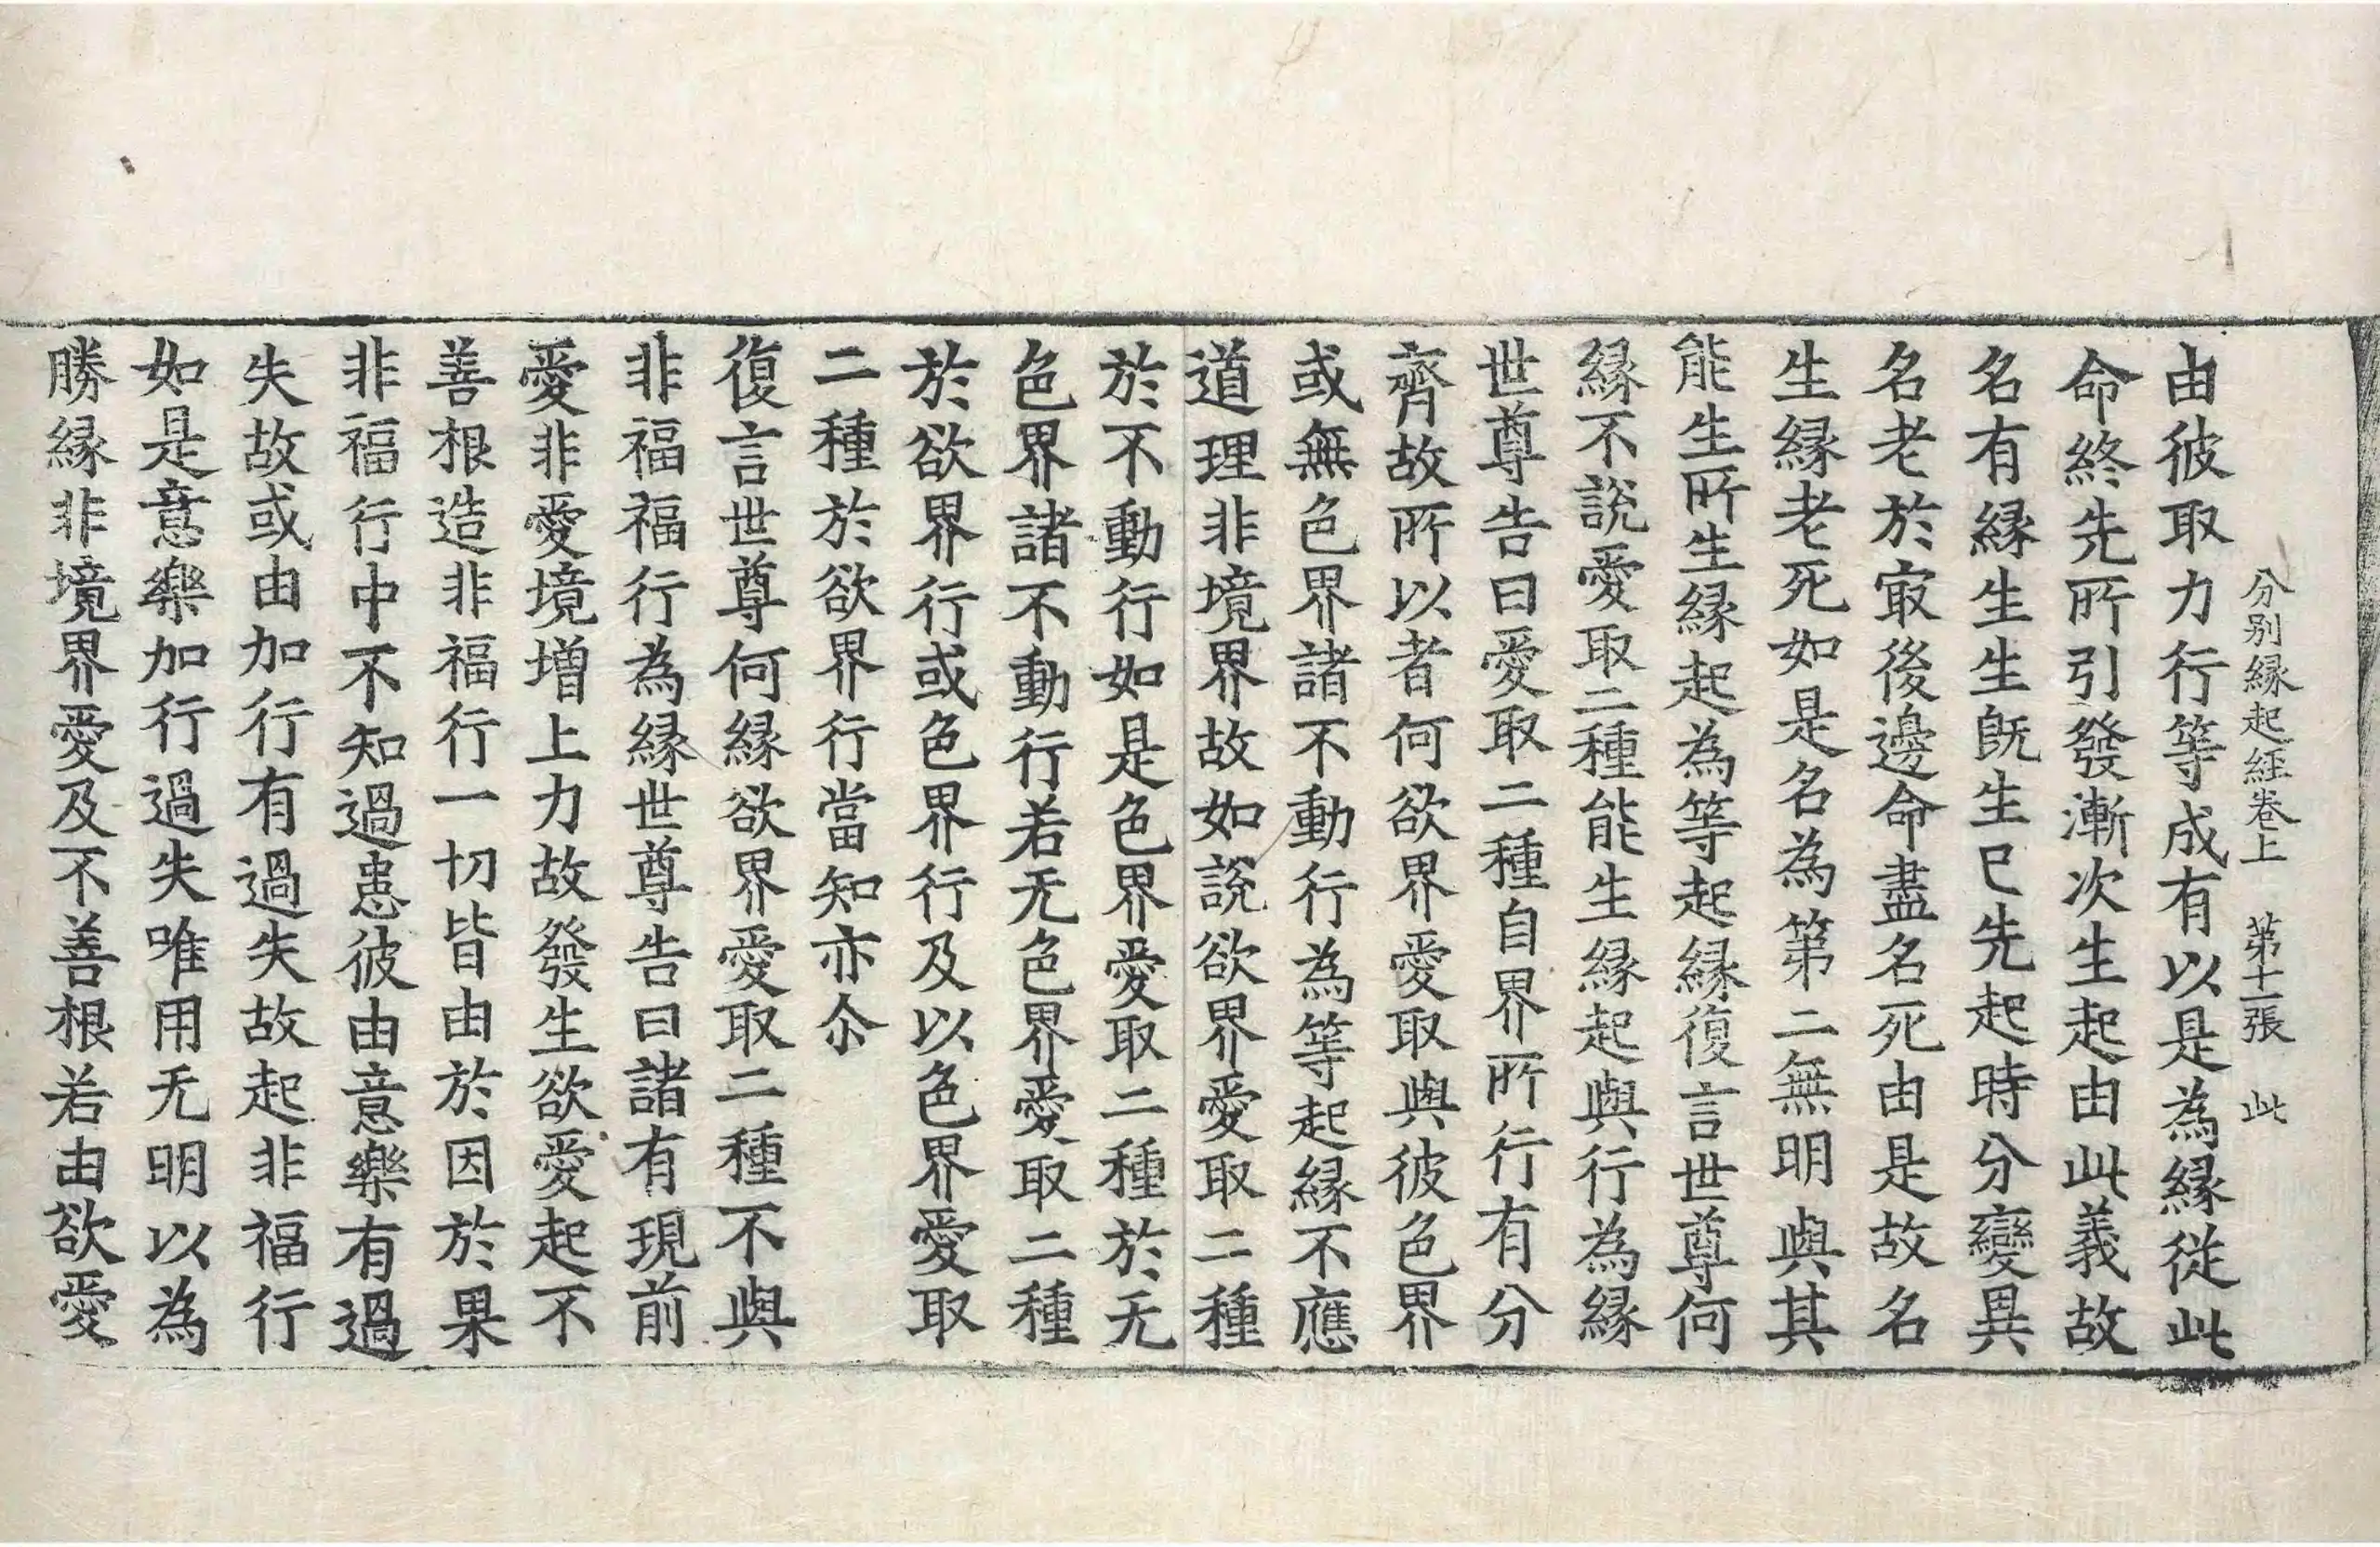 分別縁起經卷上 第十一張 此
由彼取力行等成有以是為縁從此
命終先所引發漸次生起由此義故
名有縁生生旣生已先起時分變異
名老於㝡後邊命盡名死由是故名
生縁老死如是名為第二無明與其
能生所生縁起為等起縁復言世尊何
縁不說愛取二種能生縁起與行為縁
世尊告曰愛取二種自界所行有分
齊故所以者何欲界愛取與彼色界
或無色界諸不動行為等起縁不應
道理非境界故如說欲界愛取二種
於不動行如是色界愛取二種於无
色界諸不動行若无色界愛取二種
於欲界行或色界行及以色界愛取
二種於欲界行當知亦尒
復言世尊何縁欲界愛取二種不與
非福福行為縁世尊告曰諸有現前
愛非愛境增上力故發生欲愛起不
善根造非福行一切皆由於因於果
非福行中不知過患彼由意樂有過
失故或由加行有過失故起非福行
如是意樂加行過失唯用无明以為
勝縁非境界愛及不善根若由欲愛